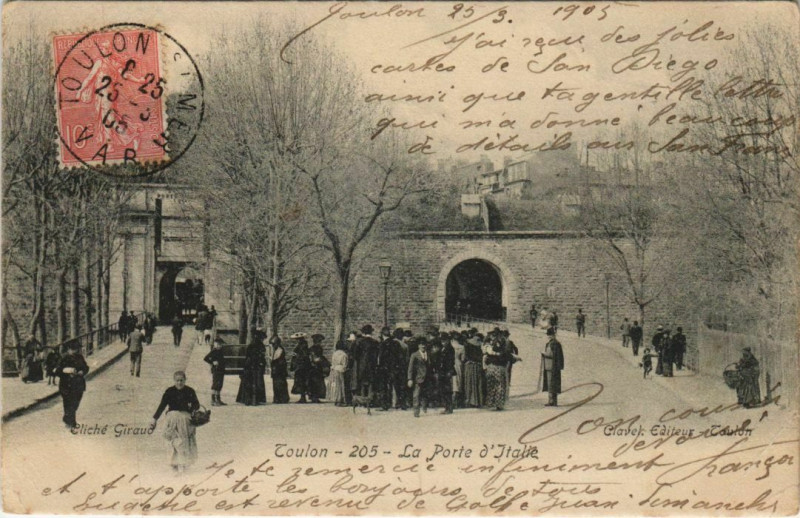 Toulon 25/3. 1905
j'ai reçu des jolies
cartes de San Diego
ainsi que ta gentille lettre
qui m'a donné beaucoup
de détails sur San Fran
TOULON S MER
25
25 - 3
05
VAR
10
Cliché Giraud
Clavel, Editeur - Toulon
Toulon - 205 - La Porte d'Italie
Ton cousin
dévoué
François
Je te remercie infiniment
et t'apporte les bonjours de tous
est revenu de Golfe Juan dimanche